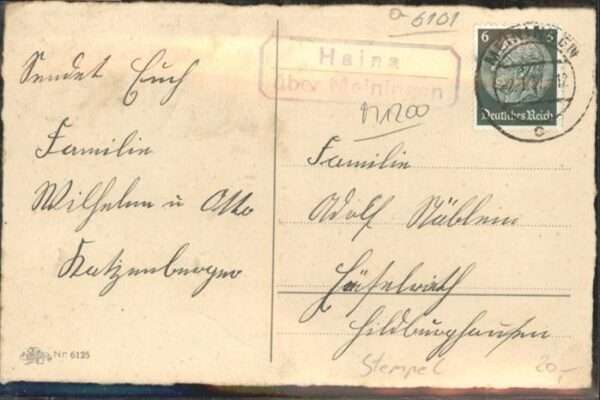 a 6101
Haina
über Meiningen
6 6
Deutsches Reich
MEININGEN
c
Sendet Euch
Familie
Wilhelm u Otto
Katzenberger
Nr. 6125
Familie
Adolf Stäblein
Häselrieth
Hildburghausen
Stempel
20,-